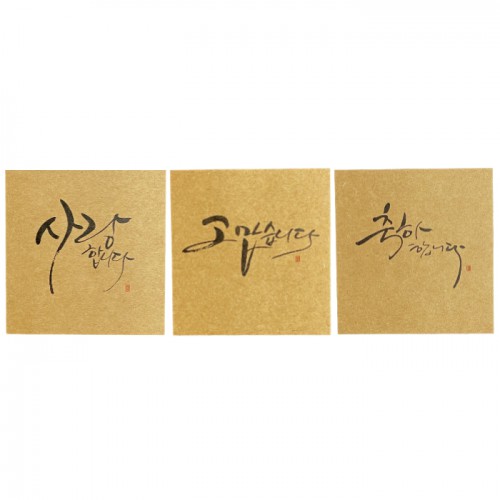 사랑
합니다
고맙습니다
축하
합니다